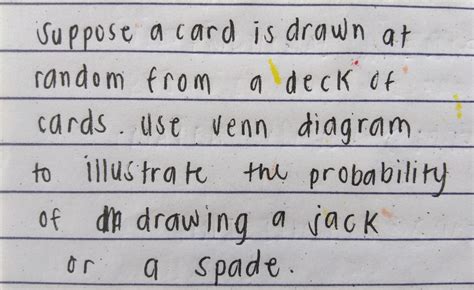 suppose a card is drawn at
random from a deck of
cards. use venn diagram
to illustrate the probability
of drawing a jack
or a spade.